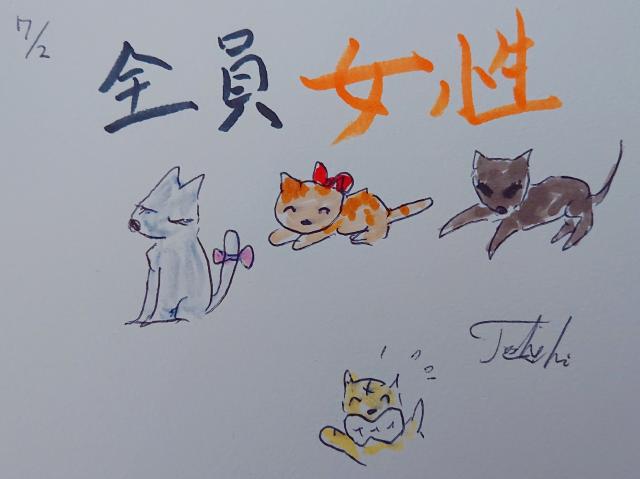 7/2
全員女性